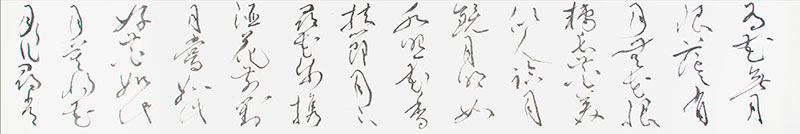 有花無月
恨茫茫有
月無花恨
轉長花美
似人臨月
鏡月明如
水照花香
扶筇月下
尋花步攜
酒花前對
月嘗如此
好花如此
月莫將花
月作尋常